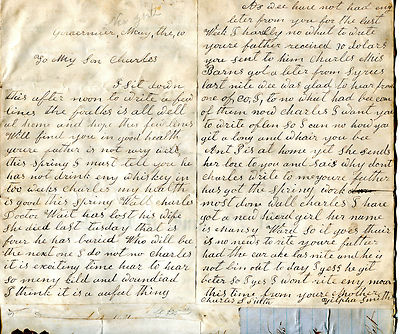 Gouverneur, May, the, 10
To My Son Charles
I sit down
this after noon to write a few
lines the foalks is all well
at home and hope this few lines
Will find you in good health
youre father is not very well
this Spring I must tell you he
has not drink eny whiskey in
too weeks Charles my health
is good this Spring Well Charles
Doctor Wait has lost his wife
She died last tusday that is
four he has buried Who will be
the next one I do not no Charles
it is exciting time hear to hear
So meny kild and woundead
I think it is a auful thing
As wee have not had eny
leter from you for the last
Week I hardly no what to write
youre father received 70 dolars
you sent to him Charles Mis
Barns got a leter from Syres
last nite wee was glad to hear from
one of Co, I, to no what had becom
of them now Charles I want you
to write often So I can no how you
git along and whair you be
Ant is at home yet She sends
her love to you and Sais why dont
Charles write to me youre father
has got the Spring work
most don Wall Charles I have
got a new hierd girl her name
is Nansy Ward So it goes thair
is no news to rite youre father
had the ear ake las nite and he is
not bin out to day I gess he git
beter So I gess I wont rite eny more
this time from youre Mother
Charles Smith